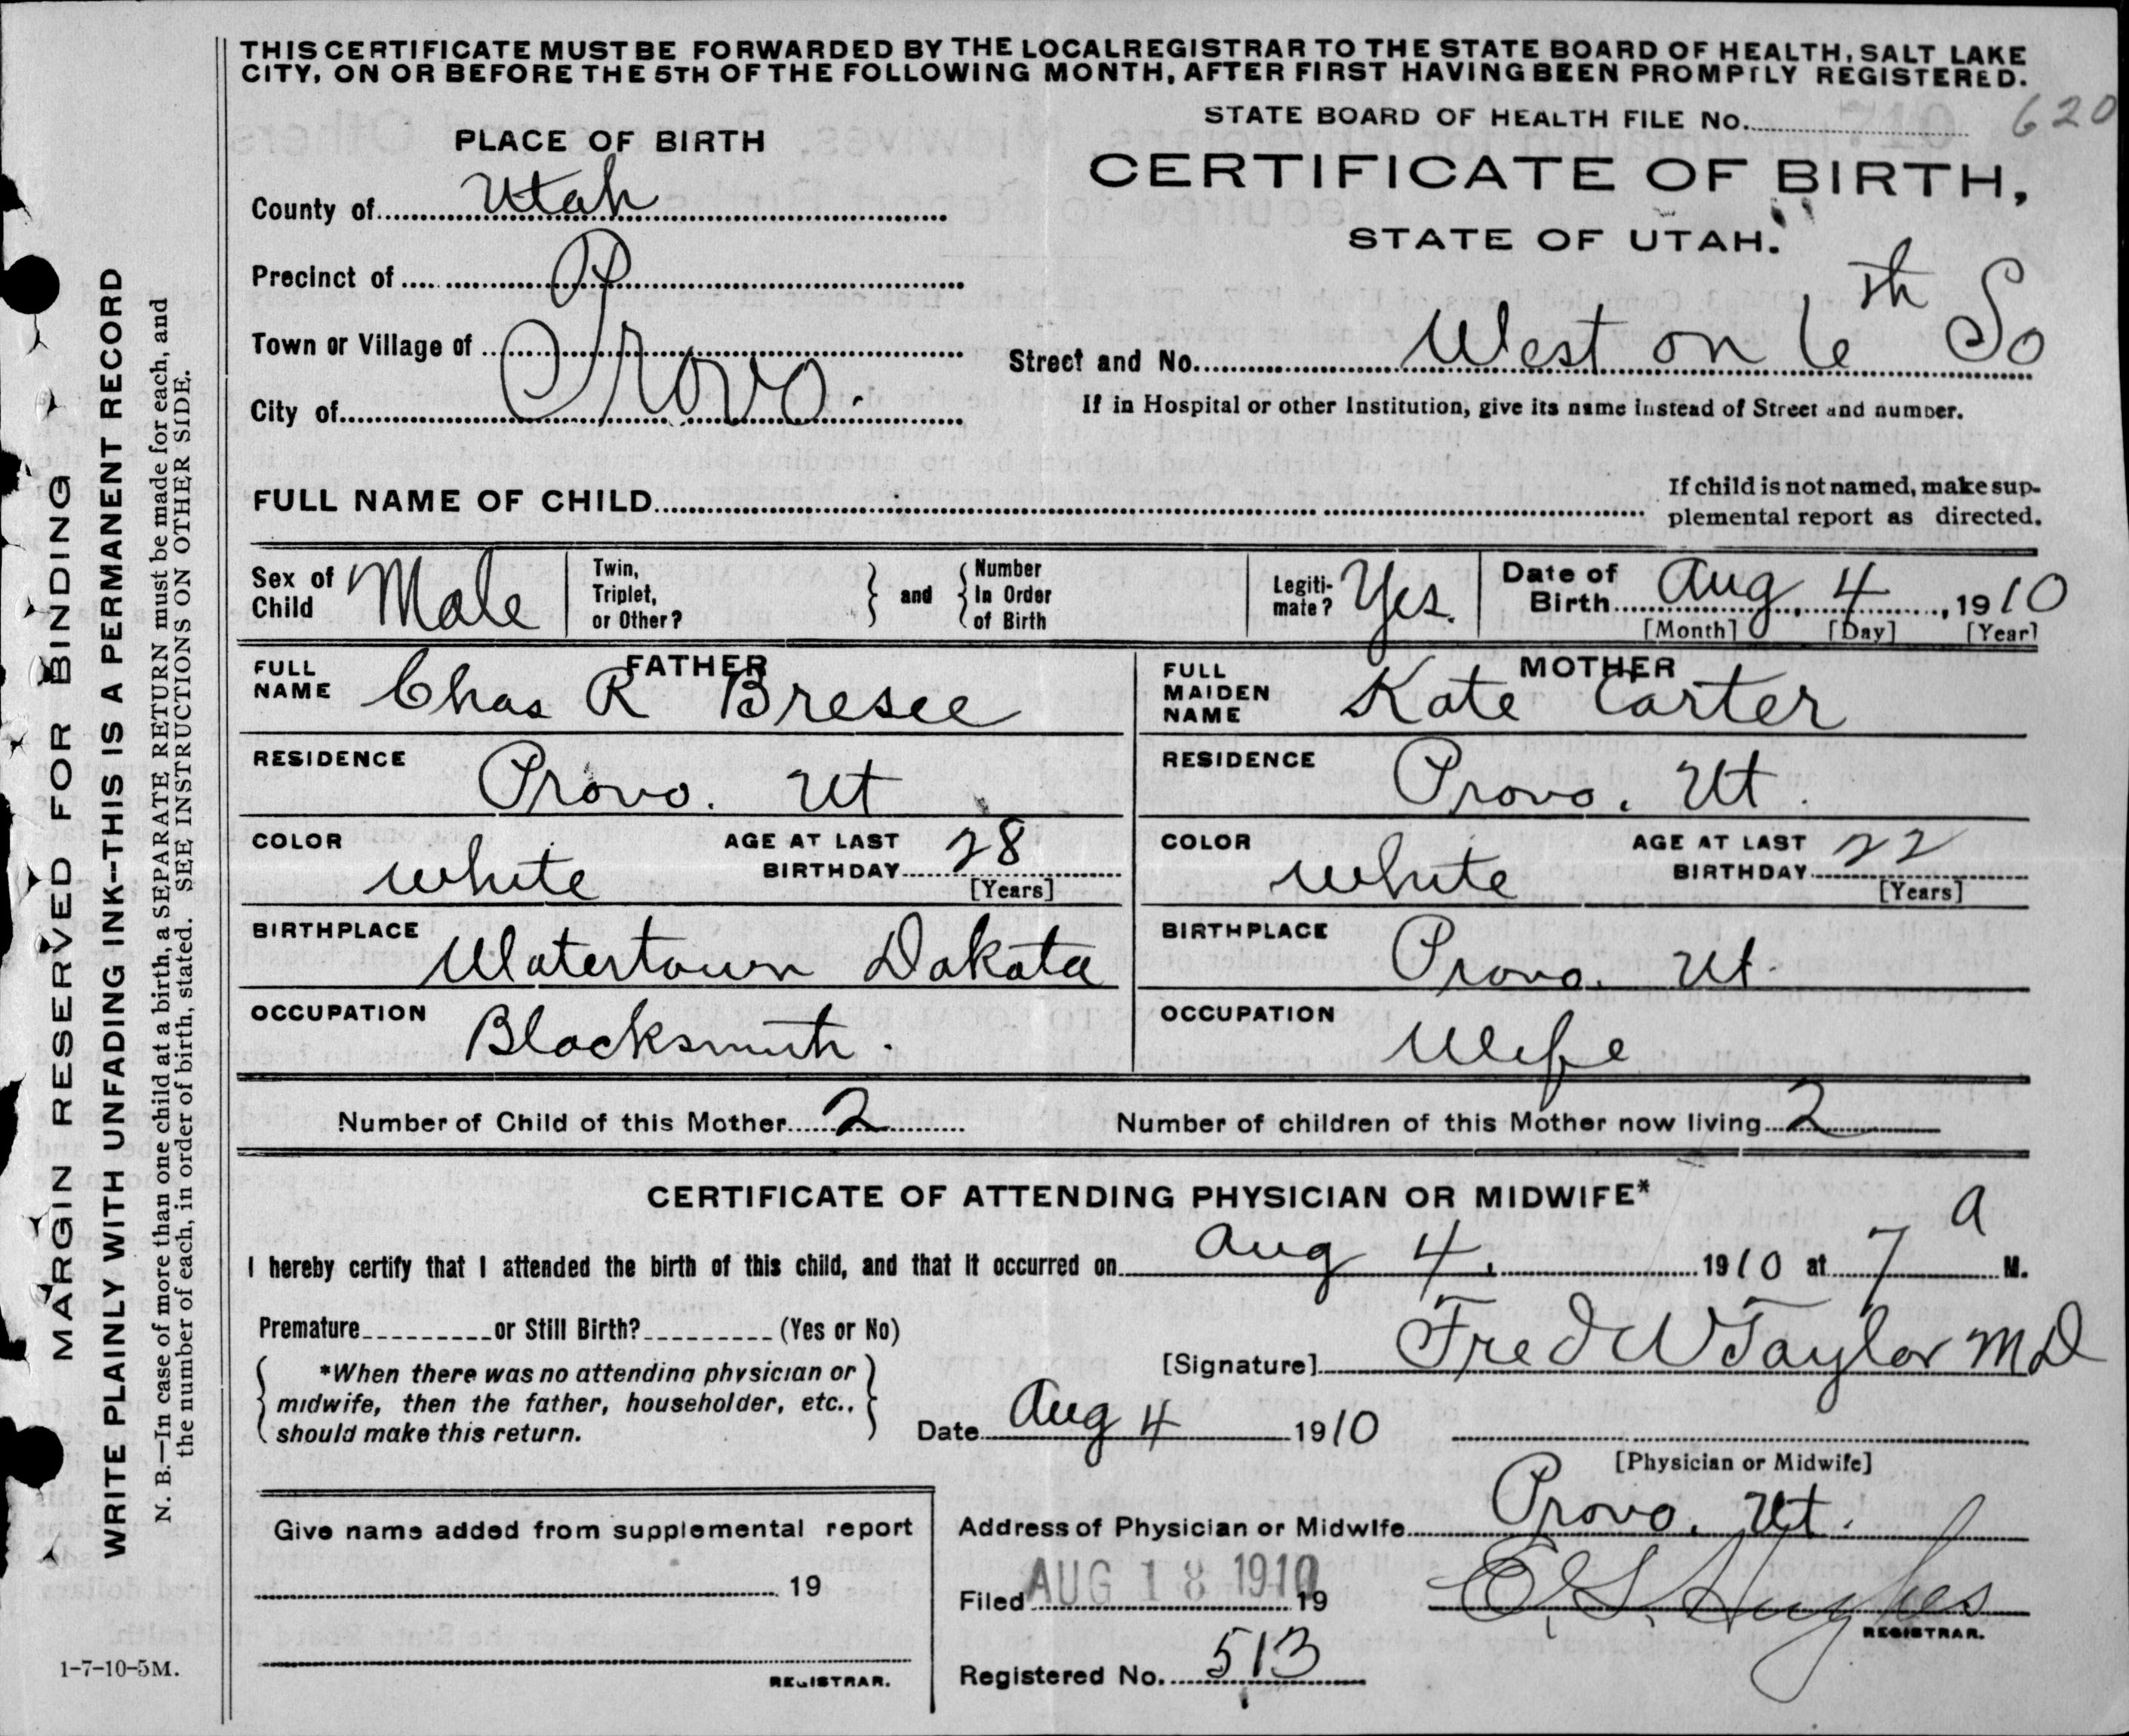 THIS CERTIFICATE MUST BE FORWARDED BY THE LOCAL REGISTRAR TO THE STATE BOARD OF HEALTH, SALT LAKE
CITY, ON OR BEFORE THE 5TH OF THE FOLLOWING MONTH, AFTER FIRST HAVING BEEN PROMPTLY REGISTERED.
STATE BOARD OF HEALTH FILE No. 620
PLACE OF BIRTH
CERTIFICATE OF BIRTH,
STATE OF UTAH.
County of Utah
Precinct of P
Town or Village of
City of Provo.
Street and No. West on 6th So
If in Hospital or other Institution, give its name instead of Street and number.
FULL NAME OF CHILD
If child is not named, make sup-
plemental report as directed.
Sex of Child Male
Twin, Triplet, or Other?
and
Number In Order of Birth
Legiti-mate? Yes.
Date of Birth Aug. 4, 1910
[Month] [Day] [Year]
FATHER
FULL NAME Chas R Bresee
RESIDENCE Provo. Ut
COLOR white AGE AT LAST BIRTHDAY 28
[Years]
BIRTHPLACE Watertown Dakota
OCCUPATION Blacksmith.
MOTHER
FULL MAIDEN NAME Kate Carter
RESIDENCE Provo. Ut.
COLOR white AGE AT LAST BIRTHDAY 22
[Years]
BIRTHPLACE Provo. Ut.
OCCUPATION Wife
Number of Child of this Mother 2 Number of children of this Mother now living 2
CERTIFICATE OF ATTENDING PHYSICIAN OR MIDWIFE*
I hereby certify that I attended the birth of this child, and that it occurred on Aug 4. 1910 at 7 a M.
Premature or Still Birth? (Yes or No)
*When there was no attending physician or
midwife, then the father, householder, etc.,
should make this return.
[Signature] Fred W Taylor MD
Date Aug 4 1910
[Physician or Midwife]
Address of Physician or Midwife Provo. Ut.
Filed AUG 18 1910 19
E. S. Hughes
REGISTRAR.
Registered No. 513
Give name added from supplemental report
19
REGISTRAR.
MARGIN RESERVED FOR BINDING
WRITE PLAINLY WITH UNFADING INK--THIS IS A PERMANENT RECORD
N. B.—In case of more than one child at a birth, a SEPARATE RETURN must be made for each, and
the number of each, in order of birth, stated. SEE INSTRUCTIONS ON OTHER SIDE.
1-7-10-5M.